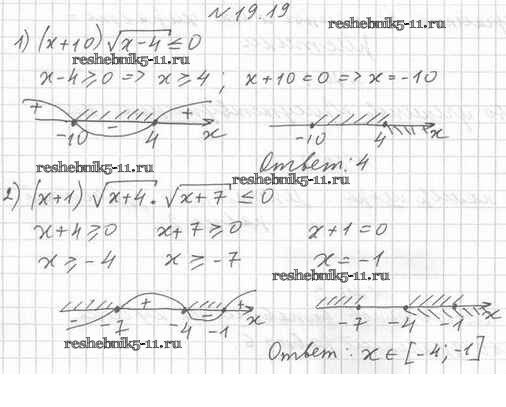 № 19.19
reshebnik5-11.ru
1) (x+10) √x-4 ≤ 0
reshebnik5-11.ru
x-4 ≥ 0 => x ≥ 4 ; x+10 = 0 => x = -10
+ - + -10 4 x -10 4 x
Ответ: 4
reshebnik5-11.ru reshebnik5-11.ru
2) (x+1) √x+4 · √x+7 ≤ 0
x+4 ≥ 0 x+7 ≥ 0 x+1 = 0
x ≥ -4 x ≥ -7 x = -1
reshebnik5-11.ru
- + - + -7 -4 -1 x -7 -4 -1 x
reshebnik5-11.ru
Ответ: x ∈ [-4; -1]